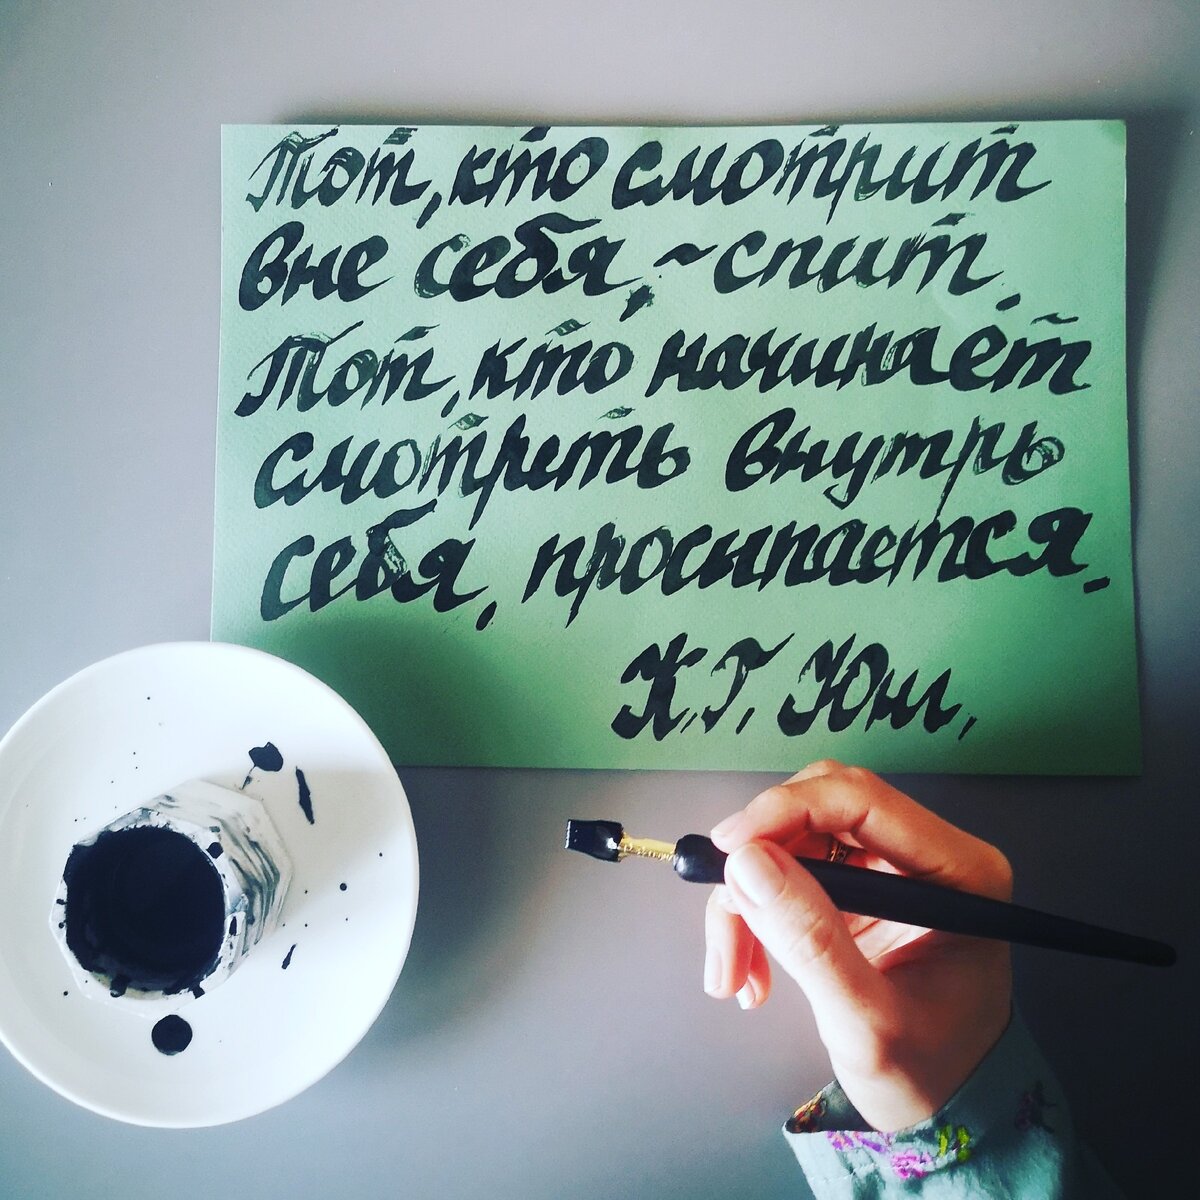 Тот, кто смотрит
вне себя, ~ спит.
Тот, кто начинает
смотреть внутрь
себя, просыпается.
К.Г. Юнг.